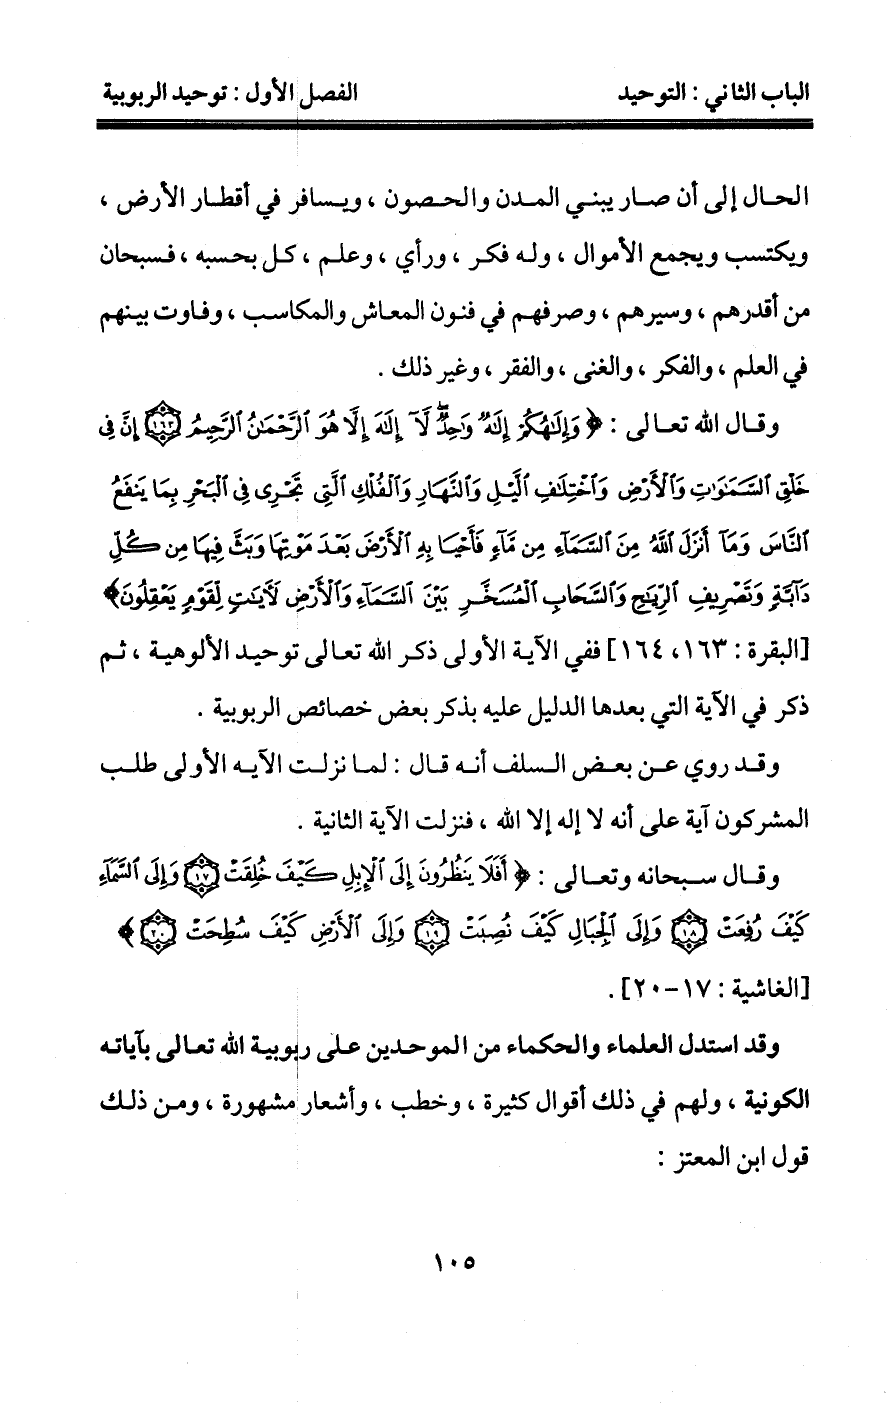 الباب الثاني : التوحيد الفصل الأول : توحيد الربوبية
الحال إلى أن صار يبني المدن والحصون ، ويسافر في أقطار الأرض ،
ويكتسب ويجمع الأموال ، وله فكر ، ورأي ، وعلم ، كل بحسبه ، فسبحان
من أقدرهم ، وسيرهم ، وصرفهم في فنون المعاش والمكاسب ، وفاوت بينهم
في العلم ، والفكر ، والغنى ، والفقر ، وغير ذلك .
وقال الله تعالى : ﴿ وَإِلَٰهُكُمْ إِلَٰهٌ وَٰحِدٌ ۖ لَّآ إِلَٰهَ إِلَّا هُوَ ٱلرَّحْمَٰنُ ٱلرَّحِيمُ ١٦٣ إِنَّ فِى
خَلْقِ ٱلسَّمَٰوَٰتِ وَٱلْأَرْضِ وَٱخْتِلَٰفِ ٱلَّيْلِ وَٱلنَّهَارِ وَٱلْفُلْكِ ٱلَّتِى تَجْرِى فِى ٱلْبَحْرِ بِمَا يَنفَعُ
ٱلنَّاسَ وَمَآ أَنزَلَ ٱللَّهُ مِنَ ٱلسَّمَآءِ مِن مَّآءٍ فَأَحْيَا بِهِ ٱلْأَرْضَ بَعْدَ مَوْتِهَا وَبَثَّ فِيهَا مِن كُلِّ
دَآبَّةٍ وَتَصْرِيفِ ٱلرِّيَٰحِ وَٱلسَّحَابِ ٱلْمُسَخَّرِ بَيْنَ ٱلسَّمَآءِ وَٱلْأَرْضِ لَأَيَٰتٍ لِّقَوْمٍ يَعْقِلُونَ﴾
[البقرة : ١٦٣، ١٦٤] ففي الآية الأولى ذكر الله تعالى توحيد الألوهية ، ثم
ذكر في الآية التي بعدها الدليل عليه بذكر بعض خصائص الربوبية .
وقد روي عن بعض السلف أنه قال : لما نزلت الآيه الأولى طلب
المشركون آية على أنه لا إله إلا الله ، فنزلت الآية الثانية .
وقال سبحانه وتعالى : ﴿ أَفَلَا يَنظُرُونَ إِلَى ٱلْإِبِلِ كَيْفَ خُلِقَتْ ١٧ وَإِلَى ٱلسَّمَآءِ
كَيْفَ رُفِعَتْ ١٨ وَإِلَى ٱلْجِبَالِ كَيْفَ نُصِبَتْ ١٩ وَإِلَى ٱلْأَرْضِ كَيْفَ سُطِحَتْ ٢٠ ﴾
[الغاشية : ١٧-٢٠] .
وقد استدل العلماء والحكماء من الموحدين على ربوبية الله تعالى بآياته
الكونية ، ولهم في ذلك أقوال كثيرة ، وخطب ، وأشعار مشهورة ، ومن ذلك
قول ابن المعتز :
١٠٥